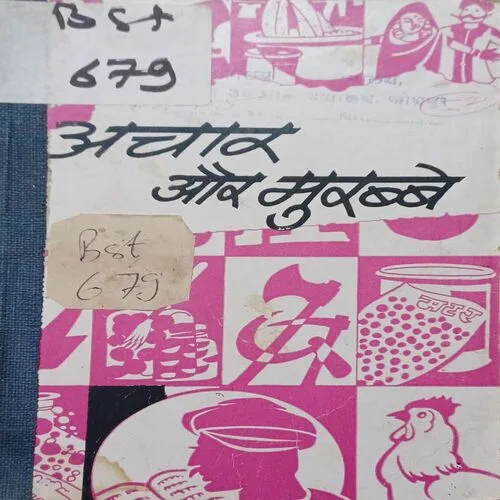 Bst
679
अचार
और मुरब्बे
Bst
679
मटर